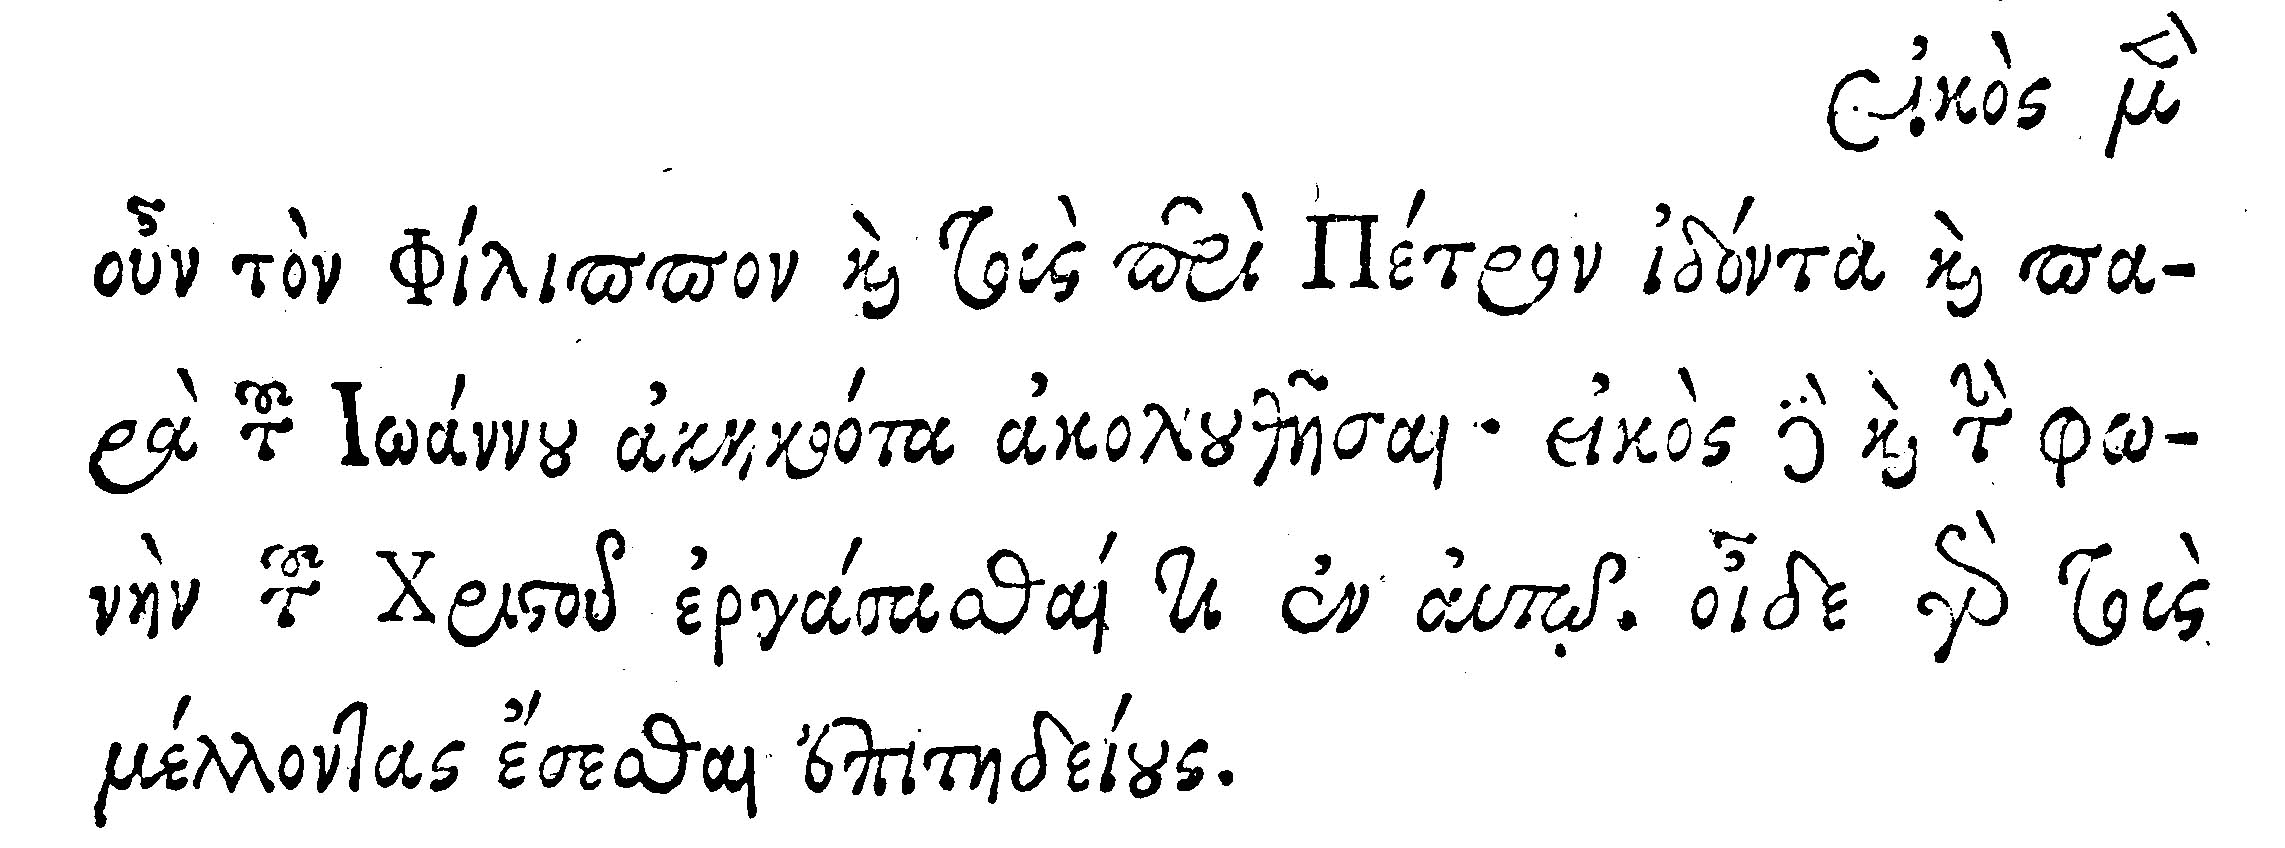 εἰκὸς μὲν
οὖν τὸν Φίλιππον καὶ τοὺς περὶ Πέτρον ἰδόντα καὶ πα-
ρὰ τοῦ Ἰωάννου ἀκηκοότα ἀκολουθῆσαι· εἰκὸς δὲ καὶ τὴν φω-
νὴν τοῦ Χριστοῦ ἐργάσασθαί τι ἐν αὐτῷ. οἶδε γὰρ τοὺς
μέλλοντας ἔσεσθαι ἐπιτηδείους.